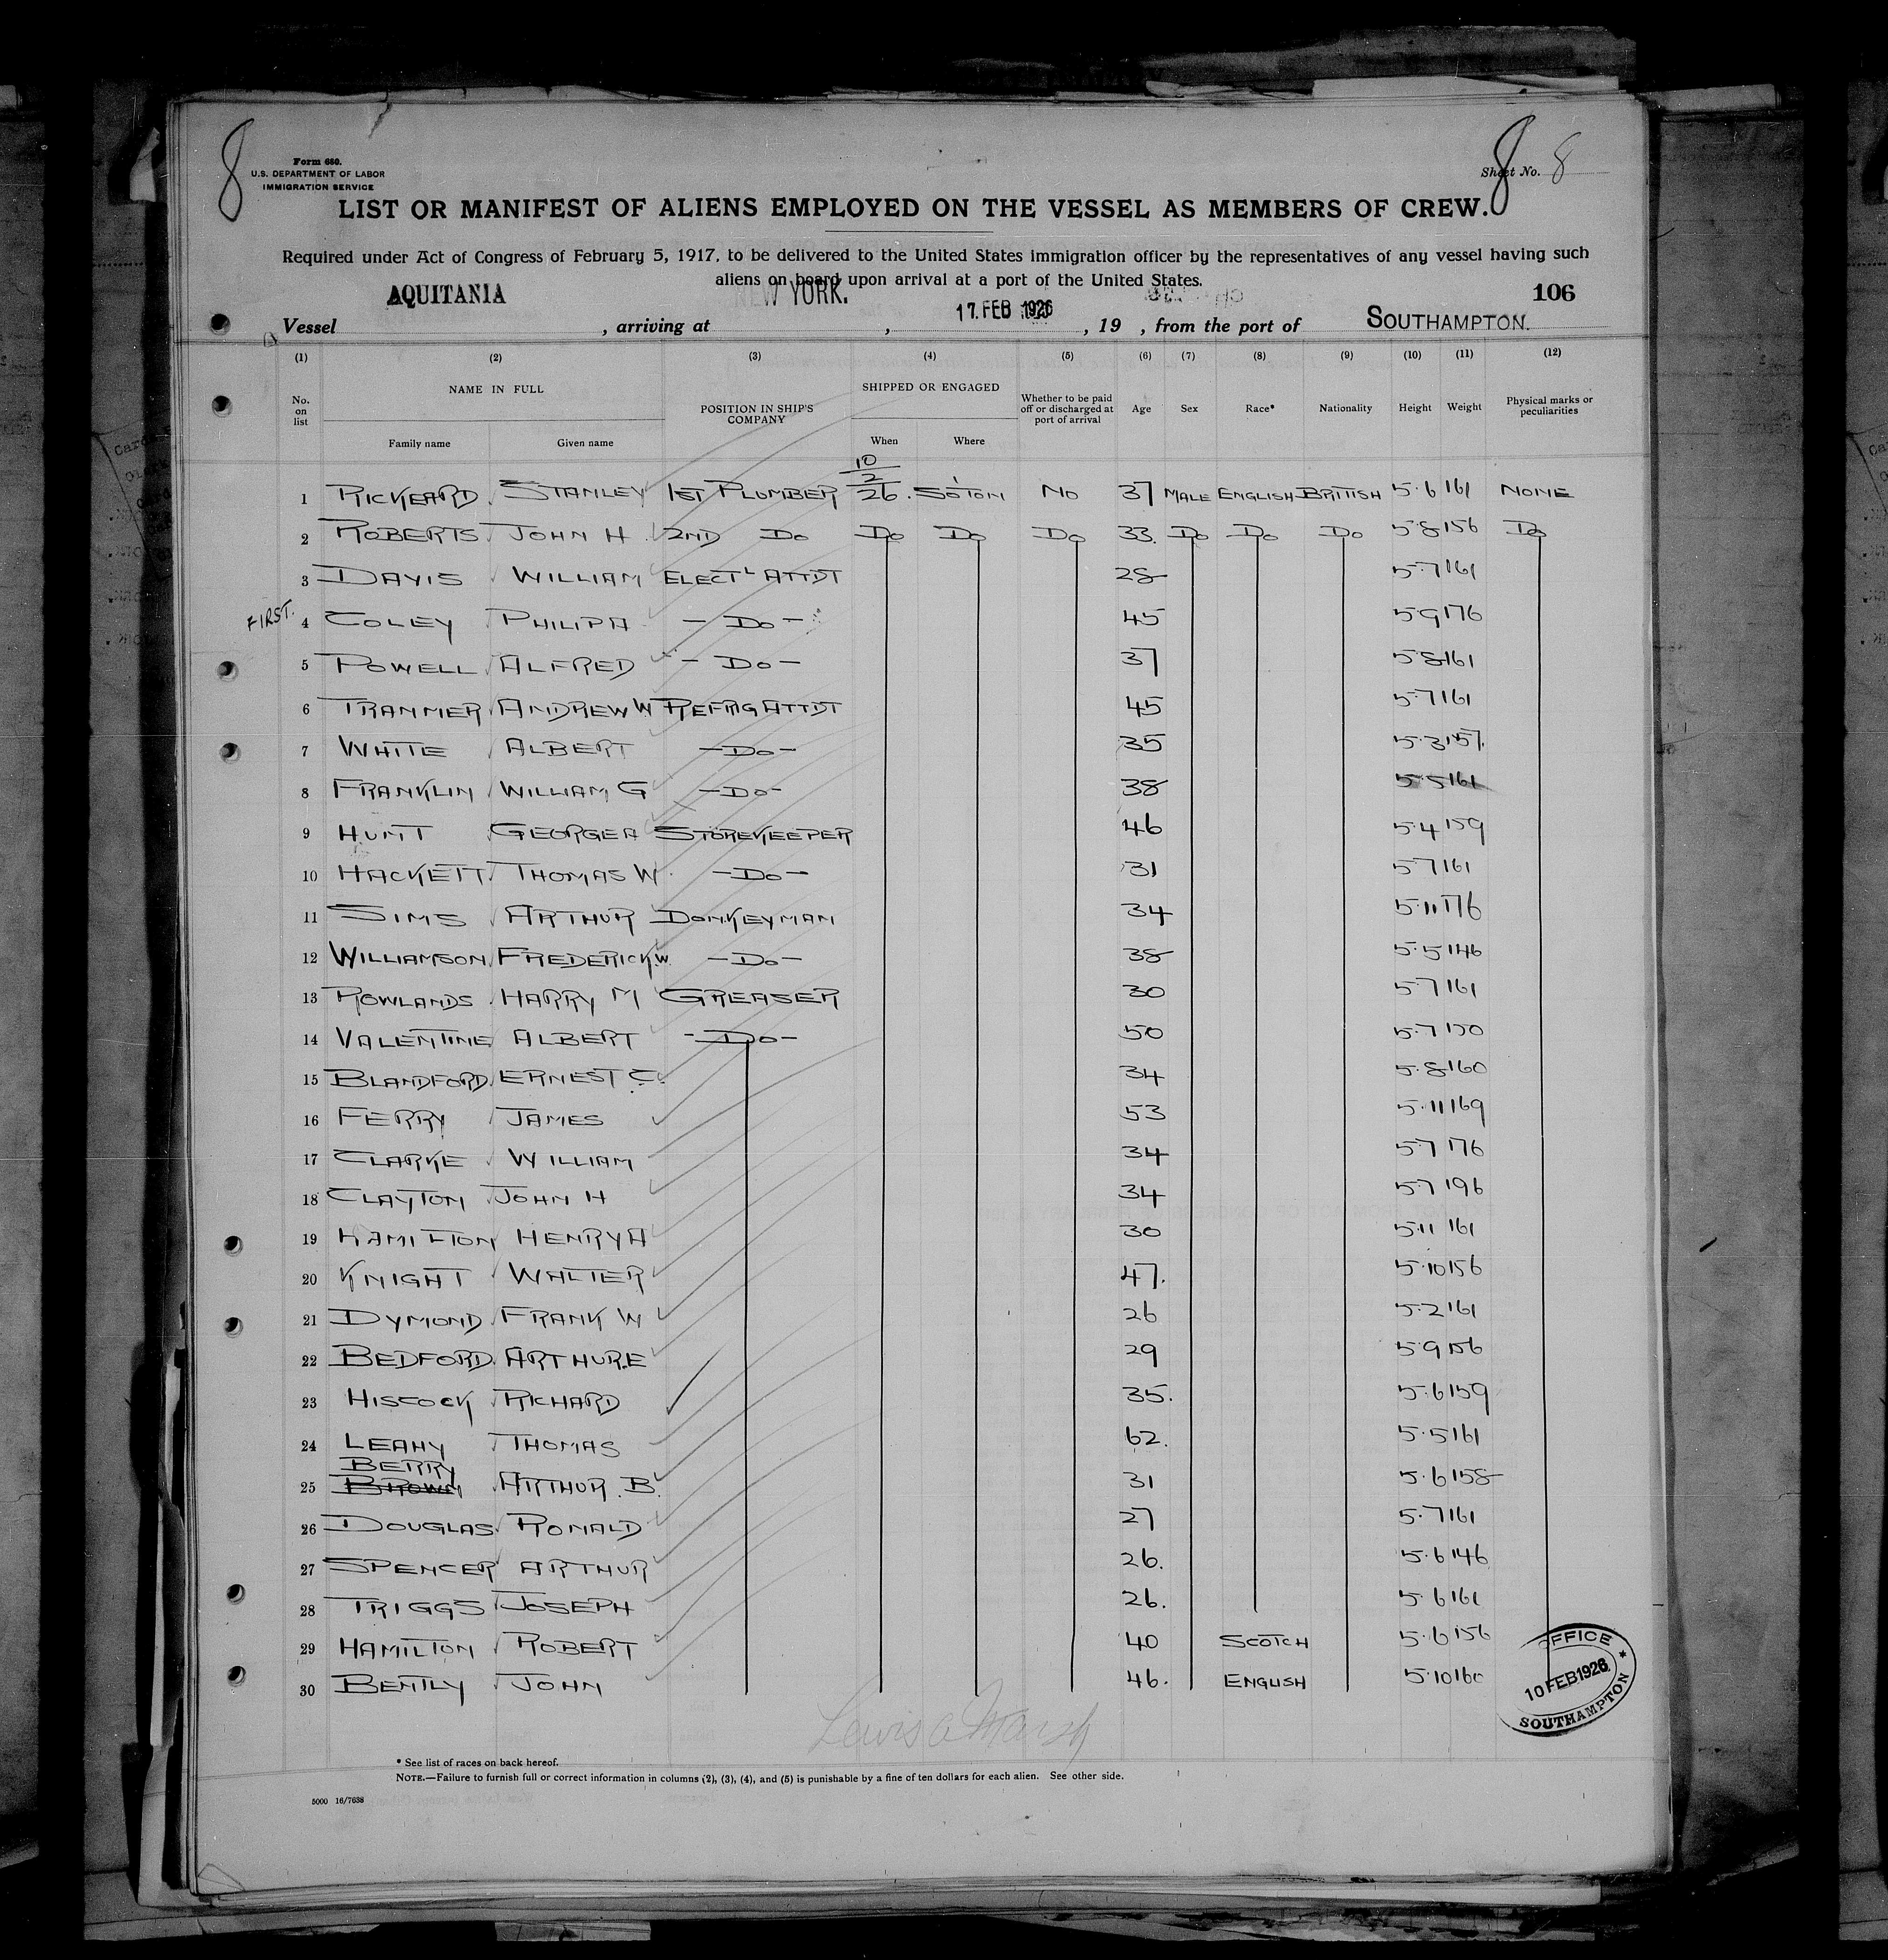 8 8
Form 680.
U.S. DEPARTMENT OF LABOR
IMMIGRATION SERVICE
Sheet No. 8
LIST OR MANIFEST OF ALIENS EMPLOYED ON THE VESSEL AS MEMBERS OF CREW.
Required under Act of Congress of February 5, 1917, to be delivered to the United States immigration officer by the representatives of any vessel having such
aliens on board upon arrival at a port of the United States.
106
Vessel AQUITANIA, arriving at NEW YORK., 17. FEB 1926, 19 , from the port of SOUTHAMPTON.
(1) (2) (3) (4) (5) (6) (7) (8) (9) (10) (11) (12)
No. on list NAME IN FULL POSITION IN SHIP'S COMPANY SHIPPED OR ENGAGED Whether to be paid off or discharged at port of arrival Age Sex Race* Nationality Height Weight Physical marks or peculiarities
Family name Given name When Where
1 RICKEARD. STANLEY 1ST PLUMBER 10/2/26. SO'TON NO 37 MALE ENGLISH BRITISH 5.6 161 NONE
2 ROBERTS JOHN H 2ND DO DO DO DO 33. DO DO DO 5.8 156 DO
3 DAVIS WILLIAM ELECTL ATTDT 28 5.7 161
FIRST. 4 COLEY PHILIP A - DO - 45 5.9 176
5 POWELL ALFRED - DO - 37 5.8 161
6 TRANMER ANDREW W REFRIG ATTDT 45 5.7 161
7 WHITE ALBERT - DO - 35 5.3 157.
8 FRANKLIN WILLIAM G - DO - 38 5.5 161
9 HUNT GEORGE A STOREKEEPER 46 5.4 159
10 HACKETT THOMAS W. - DO - 31 5.7 161
11 SIMS ARTHUR DONKEYMAN 34 5.11 176
12 WILLIAMSON FREDERICK.W. - DO - 38 5.5 146
13 ROWLANDS HARRY M GREASER 30 5.7 161
14 VALENTINE ALBERT - DO - 50 5.7 150
15 BLANDFORD ERNEST C. 34 5.8 160
16 FERRY JAMES 53 5.11 169
17 CLARKE WILLIAM 34 5.7 176
18 CLAYTON JOHN H 34 5.7 196
19 HAMILTON HENRY A 30 5.11 161
20 KNIGHT WALTER 47. 5.10 156
21 DYMOND FRANK W 26 5.2 161
22 BEDFORD. ARTHUR.E 29 5.9 156
23 HISCOCK RICHARD 35. 5.6 159
24 LEAHY THOMAS 62. 5.5 161
BERRY
25 BROWN ARTHUR. B. 31 5.6 158
26 DOUGLAS RONALD 27 5.7 161
27 SPENCER ARTHUR 26. 5.6 146
28 TRIGGS JOSEPH 26. 5.6 161
29 HAMILTON ROBERT 40 SCOTCH 5.6 156
30 BENTLY JOHN 46. ENGLISH 5.10 160
OFFICE
10 FEB 1926
SOUTHAMPTON
Lewis A Marsh
* See list of races on back hereof.
NOTE.—Failure to furnish full or correct information in columns (2), (3), (4), and (5) is punishable by a fine of ten dollars for each alien. See other side.
5000 16/7638